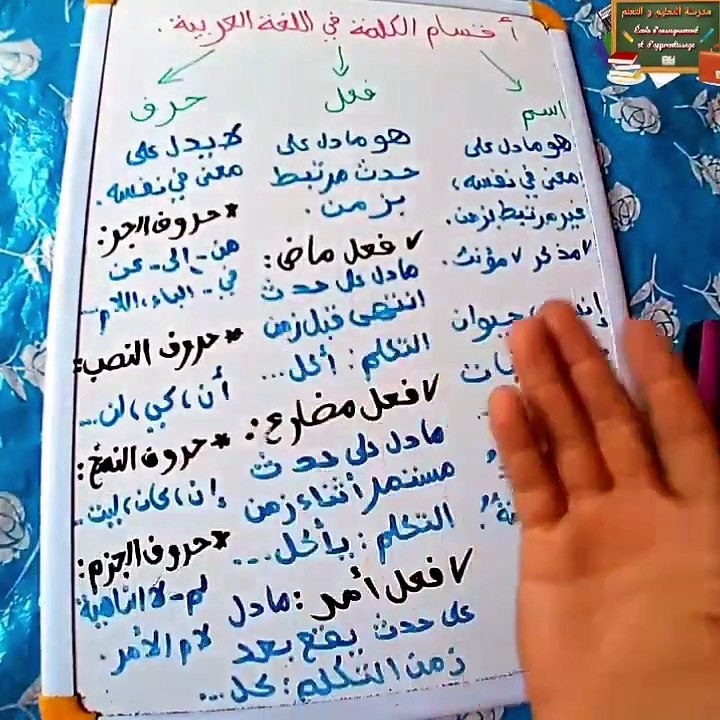 أقسام الكلمة في اللغة العربية.
اسم
هو مادل على
معنى في نفسه،
غير مرتبط بزمن.
✓مذكر ✓مؤنث.
حيوان
فعل
هو مادل على
حدث مرتبط
بزمن.
✓فعل ماض:
مادل على حدث
انتهى قبل زمن
التكلم: أكل...
✓فعل مضارع:
مادل على حدث
مستمر أثناء زمن
التكلم: يأكل...
✓فعل أمر: مادل
على حدث يقع بعد
زمن التكلم: كل...
حرف
لا يدل على
معنى في نفسه.
*حروف الجر:
من - إلى - عن
في - الباء، اللام...
*حروف النصب:
أن، كي، لن...
*حروف
إن، كان، ليت..
*حروف الجزم:
لم - لا الناهية
لام الأمر.
مدرسة التعليم و التعلم
École d'enseignement
et d'apprentissage